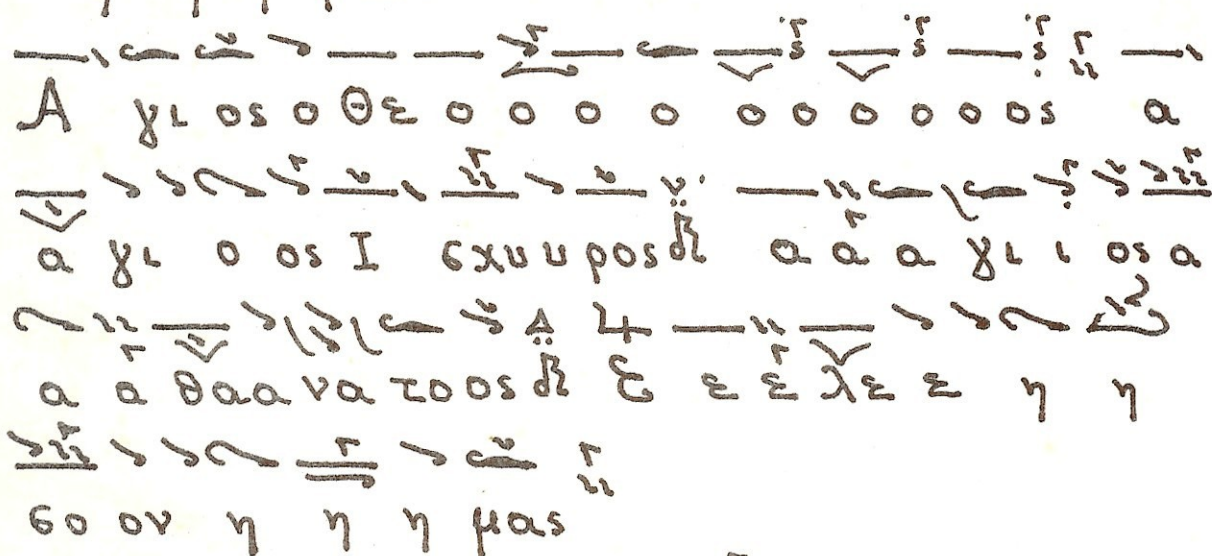 Α γι ος ο Θε ο ο ο ο ο ο ο ο ο ος α
α γι ο ος Ι σχυ υ ρος α α α γι ι ος α
α α θα α να το ος Ε ε ε λε ε η η
σο ον η η η μας